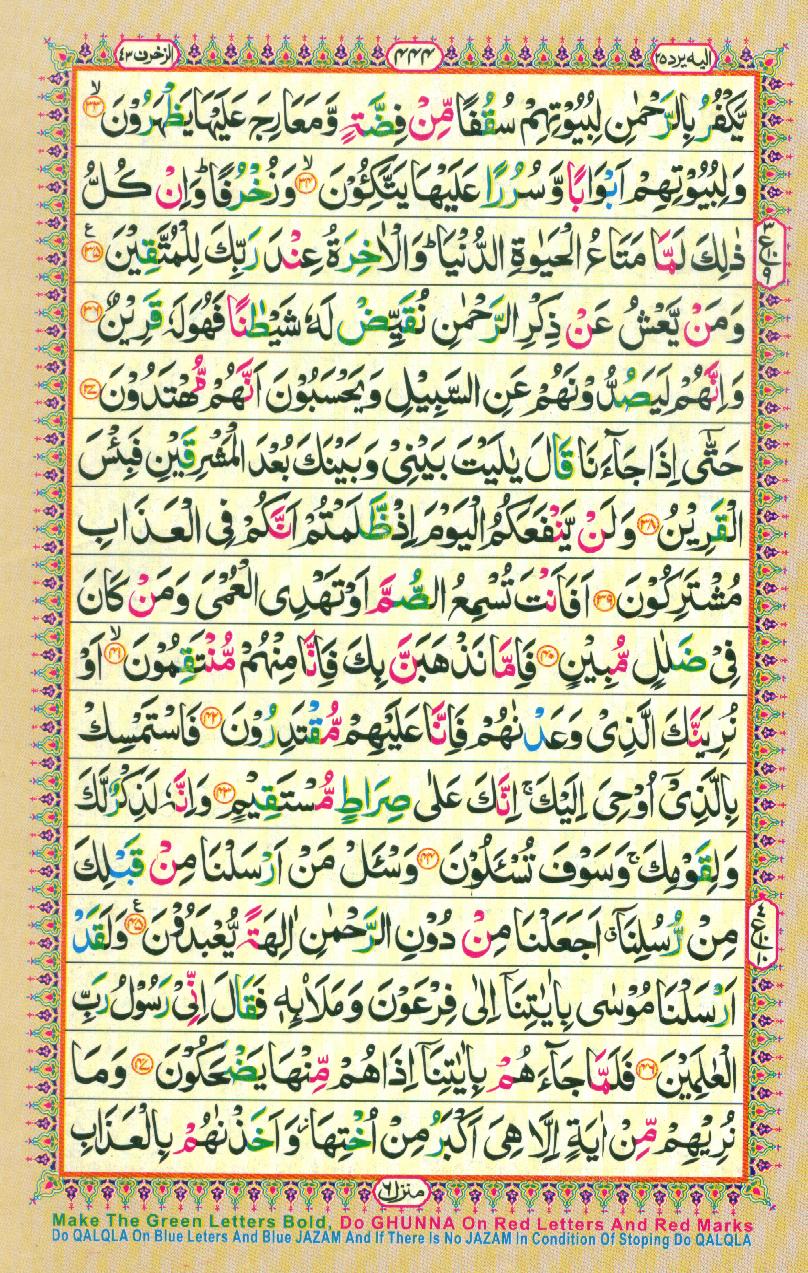 الیه یرد ۲۵ ۴۴۴ الزخرف ۴۳
یَّكْفُرُ بِالرَّحْمٰنِ لِبُیُوْتِهِمْ سُقُفًا مِّنْ فِضَّةٍ وَّمَعَارِجَ عَلَیْهَا یَظْهَرُوْنَ ۙ﴿۳۳﴾
وَلِبُیُوْتِهِمْ اَبْوَابًا وَّسُرُرًا عَلَیْهَا یَتَّكِـُٔوْنَ ۙ﴿۳۴﴾ وَزُخْرُفًا ؕ وَاِنْ كُلُّ
ذٰلِكَ لَمَّا مَتَاعُ الْحَیٰوةِ الدُّنْیَا ؕ وَالْاٰخِرَةُ عِنْدَ رَبِّكَ لِلْمُتَّقِیْنَ ﴿۳۵﴾ ع
وَمَنْ یَّعْشُ عَنْ ذِكْرِ الرَّحْمٰنِ نُقَیِّضْ لَهٗ شَیْطٰنًا فَهُوَ لَهٗ قَرِیْنٌ ﴿۳۶﴾
وَاِنَّهُمْ لَیَصُدُّوْنَهُمْ عَنِ السَّبِیْلِ وَیَحْسَبُوْنَ اَنَّهُمْ مُّهْتَدُوْنَ ﴿۳۷﴾
حَتّٰۤی اِذَا جَآءَنَا قَالَ یٰلَیْتَ بَیْنِیْ وَبَیْنَكَ بُعْدَ الْمَشْرِقَیْنِ فَبِئْسَ
الْقَرِیْنُ ﴿۳۸﴾ وَلَنْ یَّنْفَعَكُمُ الْیَوْمَ اِذْ ظَّلَمْتُمْ اَنَّكُمْ فِی الْعَذَابِ
مُشْتَرِكُوْنَ ﴿۳۹﴾ اَفَاَنْتَ تُسْمِعُ الصُّمَّ اَوْ تَهْدِی الْعُمْیَ وَمَنْ كَانَ
فِیْ ضَلٰلٍ مُّبِیْنٍ ﴿۴۰﴾ فَاِمَّا نَذْهَبَنَّ بِكَ فَاِنَّا مِنْهُمْ مُّنْتَقِمُوْنَ ۙ﴿۴۱﴾ اَوْ
نُرِیَنَّكَ الَّذِیْ وَعَدْنٰهُمْ فَاِنَّا عَلَیْهِمْ مُّقْتَدِرُوْنَ ﴿۴۲﴾ فَاسْتَمْسِكْ
بِالَّذِیْۤ اُوْحِیَ اِلَیْكَ ۚ اِنَّكَ عَلٰی صِرَاطٍ مُّسْتَقِیْمٍ ﴿۴۳﴾ وَاِنَّهٗ لَذِكْرٌ لَّكَ
وَلِقَوْمِكَ ۚ وَسَوْفَ تُسْـَٔلُوْنَ ﴿۴۴﴾ وَسْـَٔلْ مَنْ اَرْسَلْنَا مِنْ قَبْلِكَ
مِنْ رُّسُلِنَاۤ ۖ اَجَعَلْنَا مِنْ دُوْنِ الرَّحْمٰنِ اٰلِهَةً یُّعْبَدُوْنَ ﴿۴۵﴾ ع وَلَقَدْ
اَرْسَلْنَا مُوْسٰی بِاٰیٰتِنَاۤ اِلٰی فِرْعَوْنَ وَمَلَا۟ئِهٖ فَقَالَ اِنِّیْ رَسُوْلُ رَبِّ
الْعٰلَمِیْنَ ﴿۴۶﴾ فَلَمَّا جَآءَهُمْ بِاٰیٰتِنَاۤ اِذَا هُمْ مِّنْهَا یَضْحَكُوْنَ ﴿۴۷﴾ وَمَا
نُرِیْهِمْ مِّنْ اٰیَةٍ اِلَّا هِیَ اَكْبَرُ مِنْ اُخْتِهَا ؗ وَاَخَذْنٰهُمْ بِالْعَذَابِ
منزل ۶
Make The Green Letters Bold, Do GHUNNA On Red Letters And Red Marks
Do QALQLA On Blue Leters And Blue JAZAM And If There Is No JAZAM In Condition Of Stoping Do QALQLA